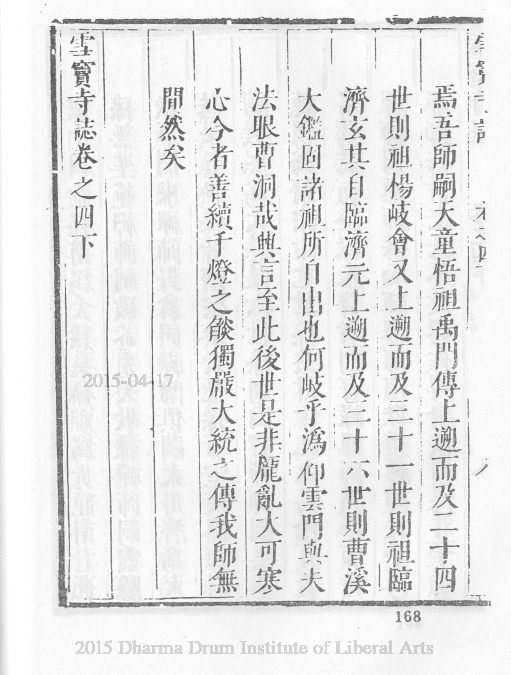 焉吾師嗣天童悟祖禹門傳上遡而及二十四
世則祖楊岐會又上遡而及三十一世則祖臨
濟玄其自臨濟元上遡而及三十六世則曹溪
大鑑固諸祖所自出也何岐乎溈仰雲門與夫
法眼曹洞哉興言至此後世是非龐亂大可寒
心今者善續千燈之燄獨嚴大統之傳我師無
間然矣
雪竇寺誌卷之四下
2015-04-17
168
2015 Dharma Drum Institute of Liberal Arts